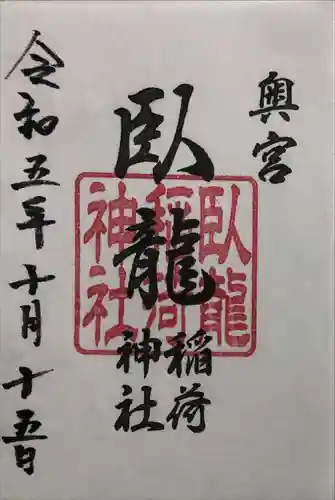 奥宮
臥龍
稲荷
神社
令和五年十月十五日
臥龍
稲荷
神社